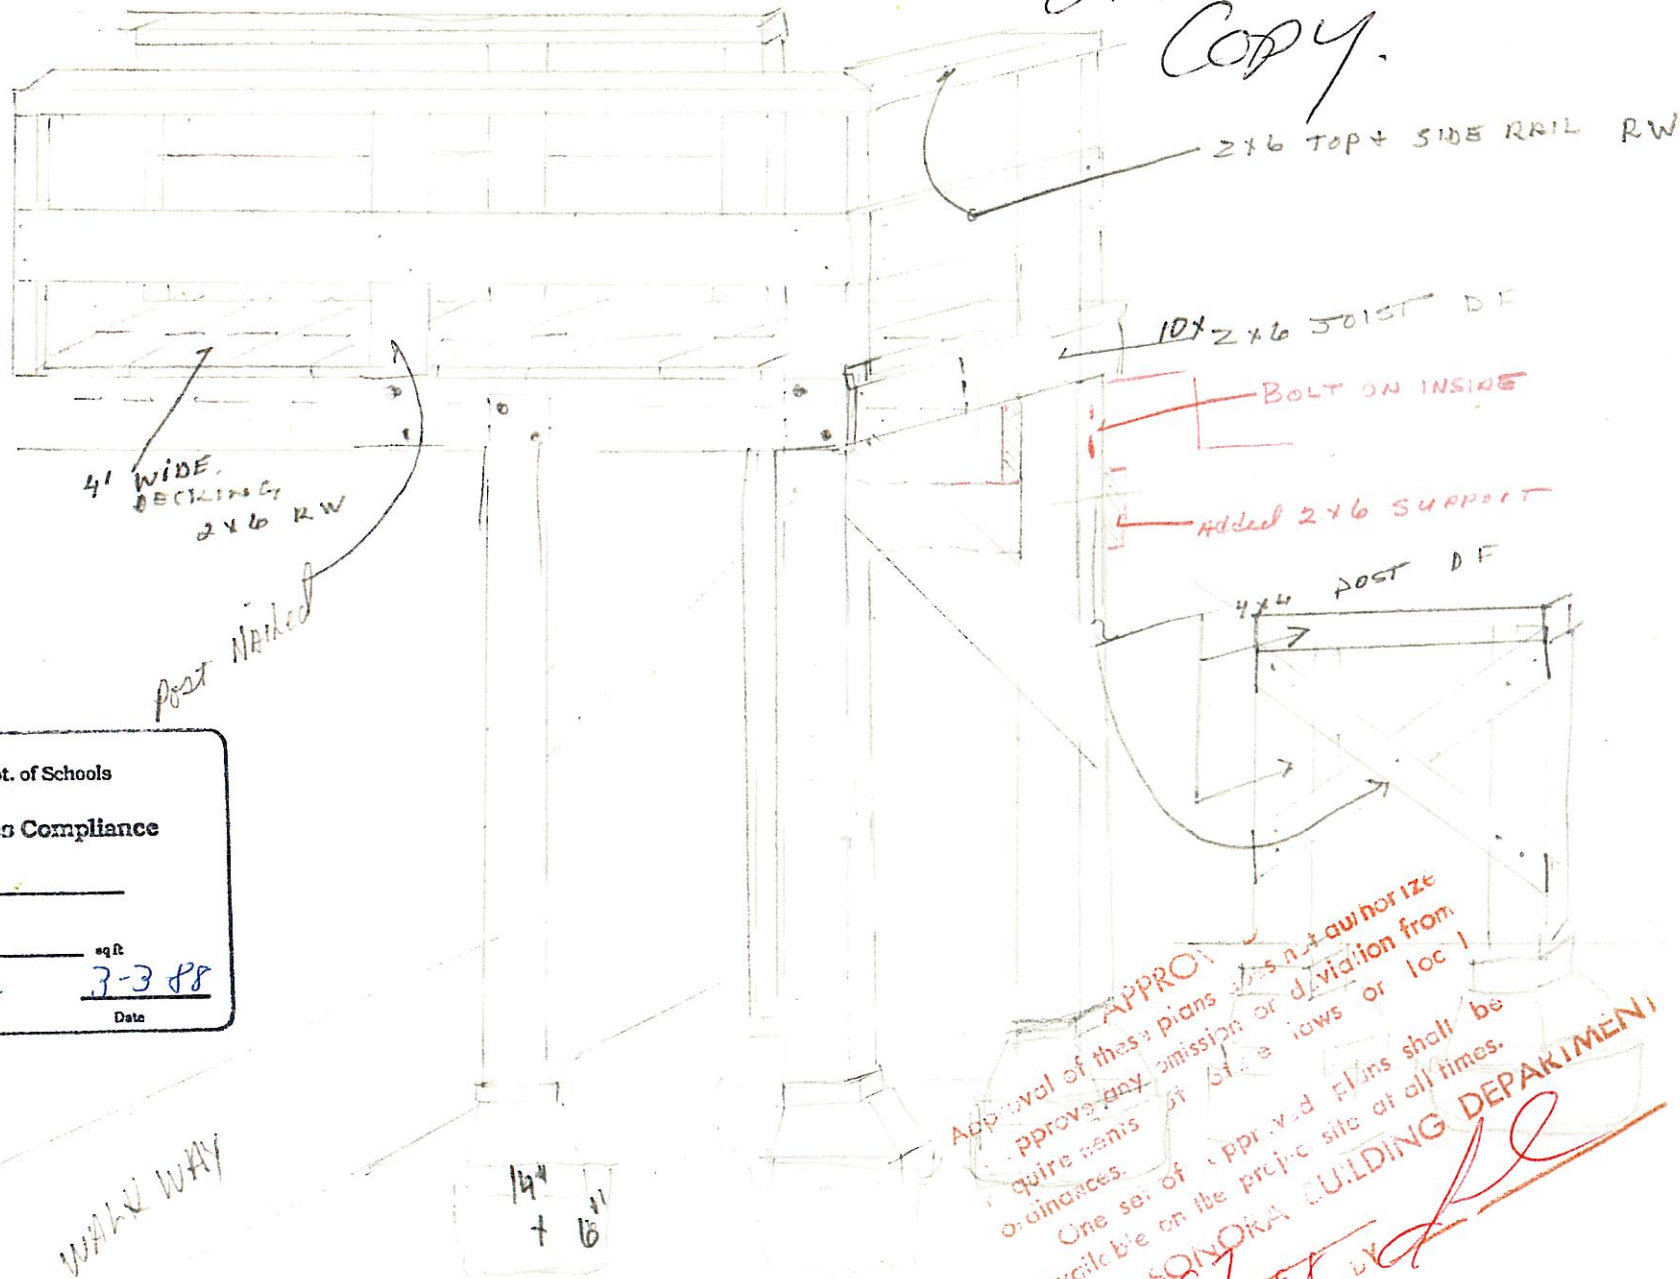 Copy.
2x6 TOP + SIDE RAIL RW
10x 2x6 JOIST DF
BOLT ON INSIDE
Added 2x6 SUPPORT
4' WIDE
DECKING
2x6 RW
Post Nailed
4x4 POST DF
pt. of Schools
s Compliance
sq ft
3-3 88
Date
WALK WAY
14"
+ 6"
Approval of these plans does not authorize
approve any omission or deviation from
quirements of state laws or local
ordinances.
One set of approved plans shall be
available on the project site at all times.
SONORA BUILDING DEPARTMENT
BY